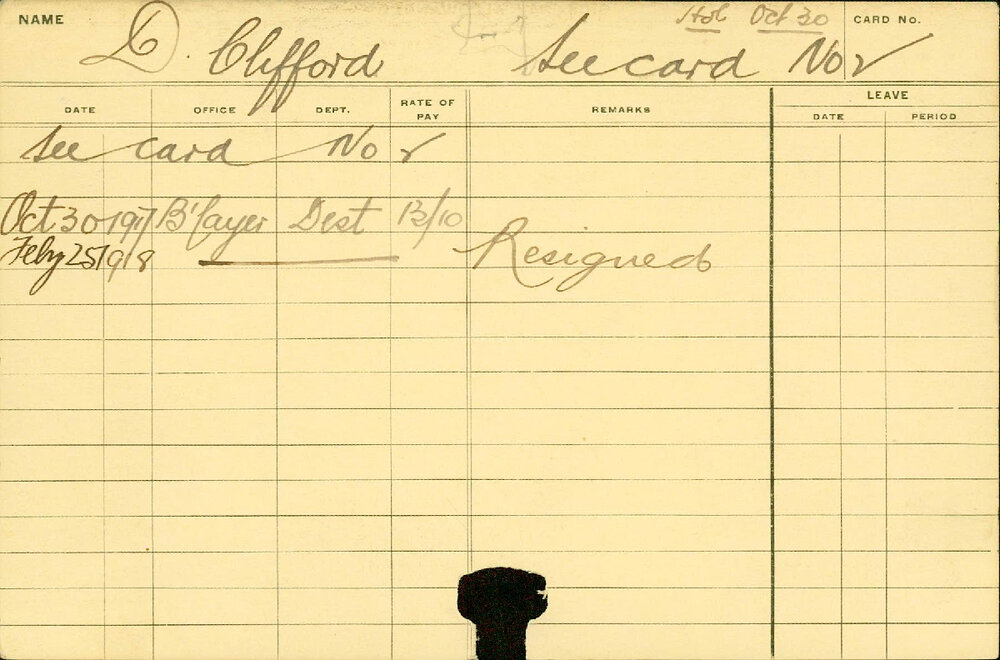 NAME Hol Oct 30 CARD No.
D. Clifford See card No 2
DATE OFFICE DEPT. RATE OF PAY REMARKS LEAVE
DATE PERIOD
See card No 2
Oct 30 1917 B'layer Dest 13/10
Feby 25 1918 Resigned